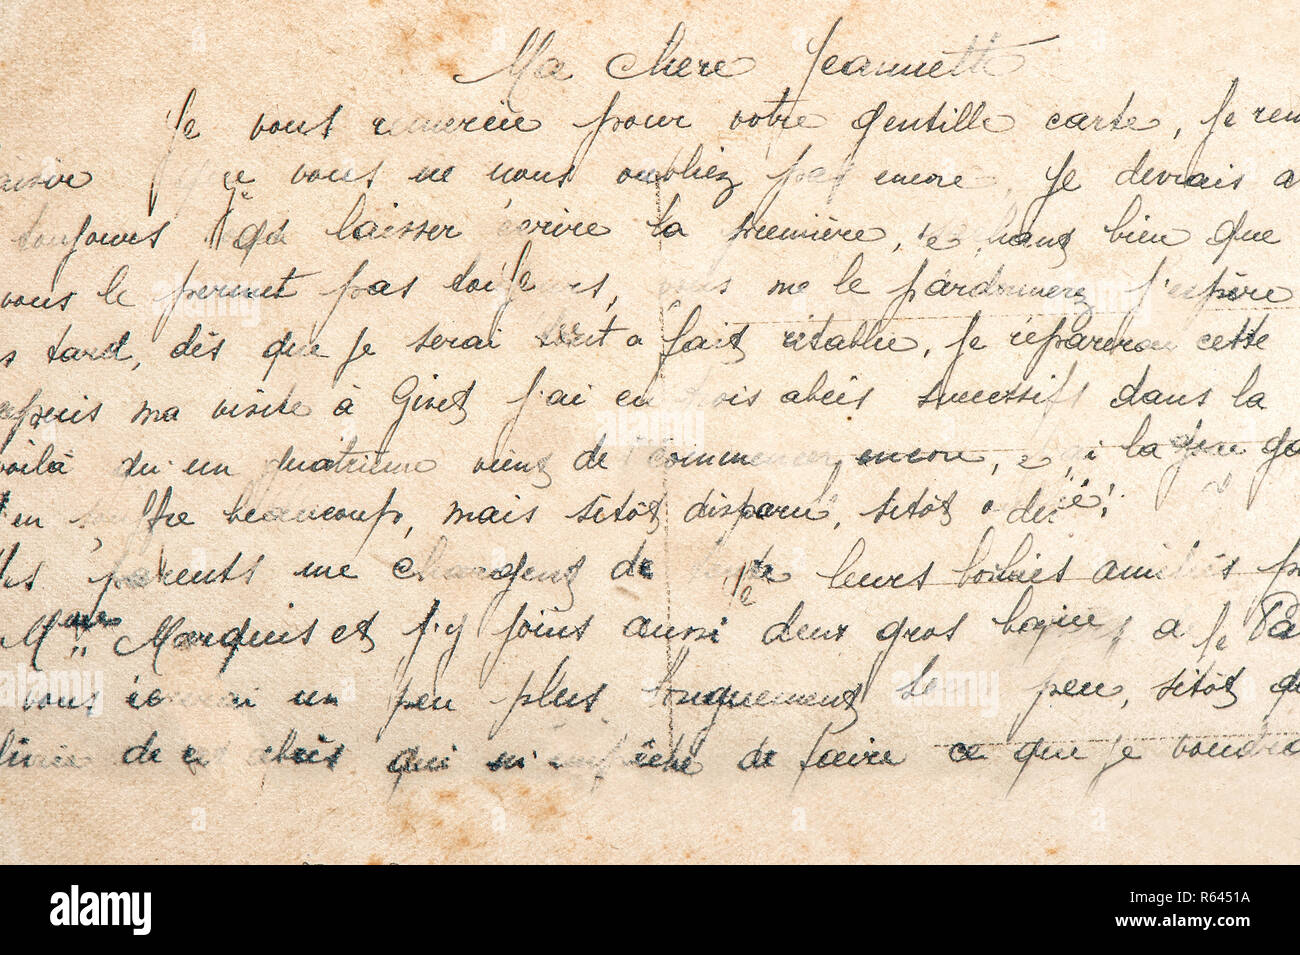 Ma chère Jeannette
Je vous remercie pour votre gentille carte, Je rem
aisir que vous ne nous oubliez pas encore, Je devrais a
toujours laisser écrire la première, bien que
vous le permet pas toujours, vous me le pardonnerez j'espère
s tard, dès que je serai tout a fait rétablie, je réparerai cette
epuis ma visite à Givet j'ai eu trois abcès successifs dans la
voilà qu'un quatrième vient de commencer encore, la
en souffre beaucoup, mais sitôt disparu, sitôt
es parents me chargent de leurs amitiés p
Marquis et j'y joins aussi deux gros a
vous un peu plus longuement sous peu, sitôt
de cet abcès qui m'empêche de faire ce que je voudra
alamy
alamy
Image ID: R6451A
www.alamy.com